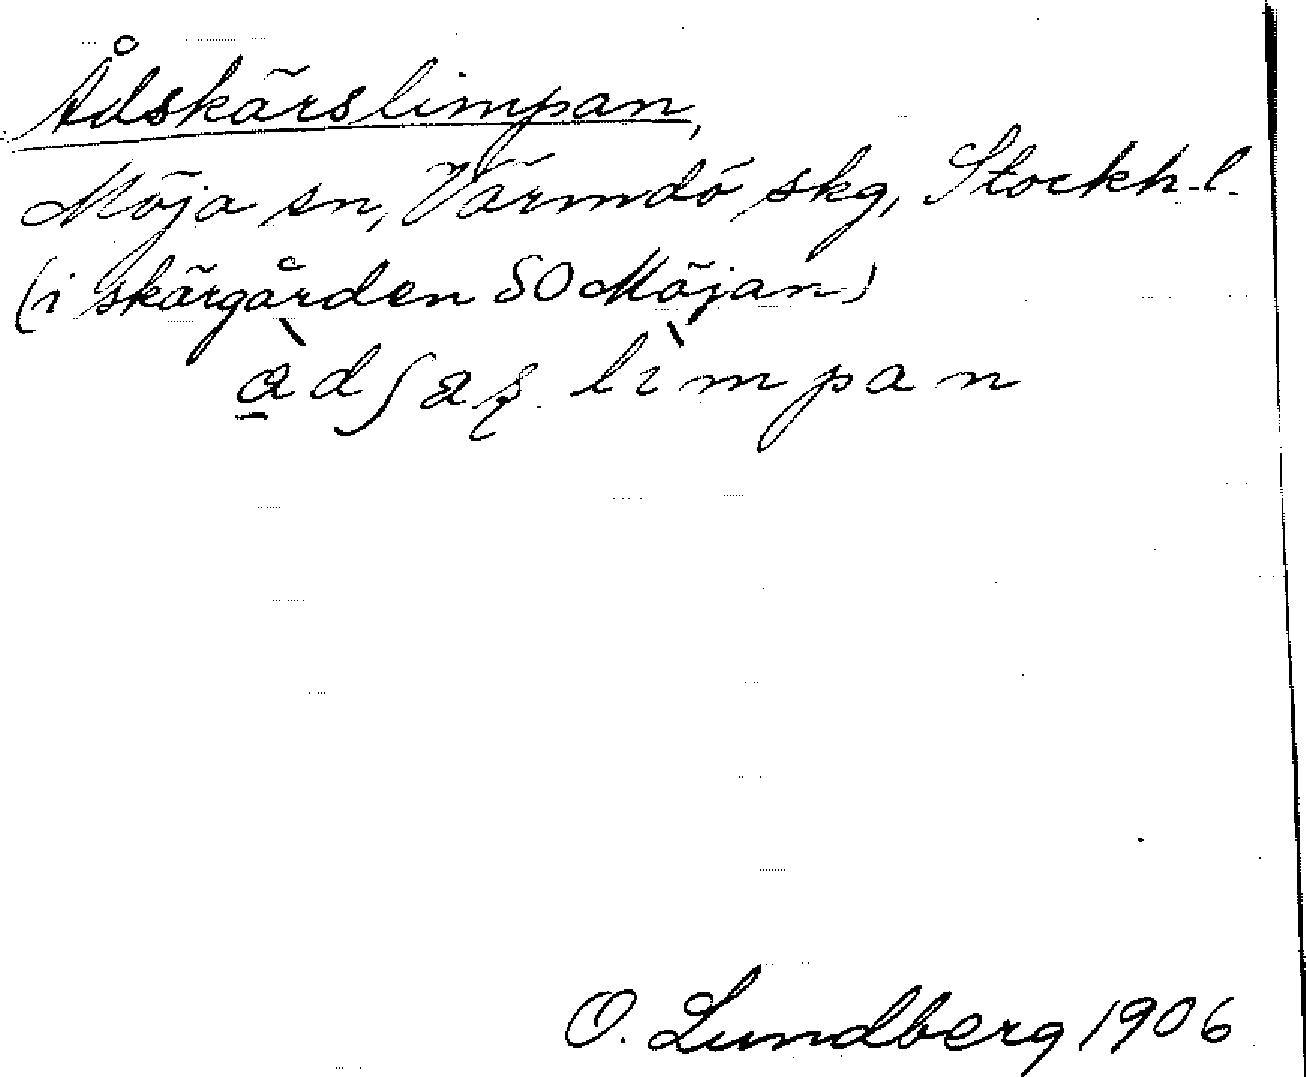 Ådskärslimpan,
Möja sn, Värmdö skg, Stockh. l.
(i skärgården SO Möjan)
O. Lundberg 1906